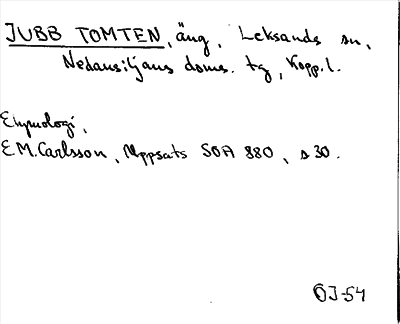 JUBB TOMTEN, äng, Leksands sn,
Nedansiljans doms. tg, Kopp. l.
Etymologi,
E.M. Carlsson, Uppsats SOA 880, s 30.
ÖJ-54